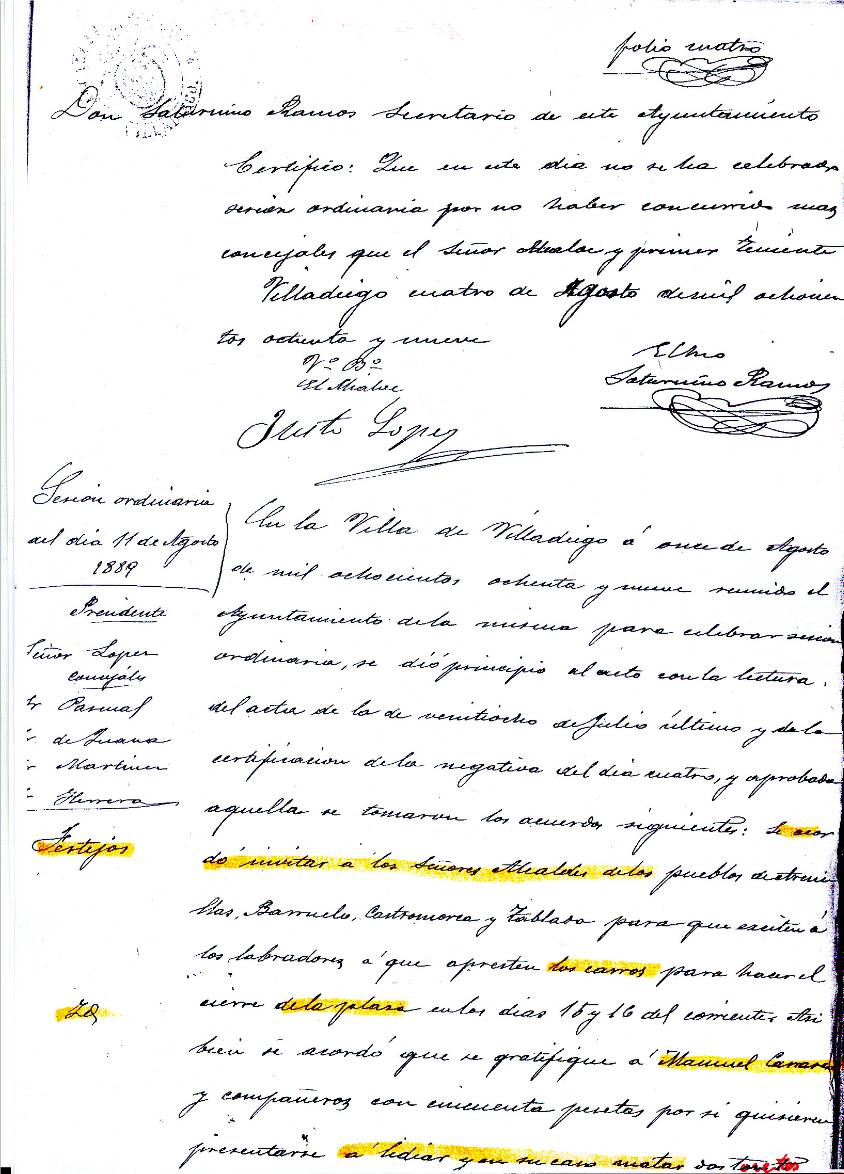 folio cuatro
Don Saturnino Ramos Secretario de este Ayuntamiento
Certifico: Que en este dia no se ha celebrado
sesion ordinaria por no haber concurrido mas
concejales que el Señor Alcalde y primer Teniente
Villadiego cuatro de Agosto de mil ochocien
tos ochenta y nueve
Vº Bº
El Alcalde
El Srio
Saturnino Ramos
Justo Lopez
Sesion ordinaria
del dia 11 de Agosto
1889
Presidente
Señor Lopez
concejales
Pascual
de Juana
Martinez
Herrera
En la Villa de Villadiego á once de Agosto
de mil ochocientos ochenta y nueve reunido el
Ayuntamiento de la misma para celebrar sesion
ordinaria, se dió principio al acto con la lectura
del acta de la de veintiocho de Julio último y de la
certificacion de la negativa del dia cuatro, y aprobada
aquella se tomaron los acuerdos siguientes: Se acor
Festejos
dó invitar á los Señores Alcaldes de los pueblos de Areni
llas, Barruelo, Castromorca y Tablada para que exciten á
los labradores á que apresten los carros para hacer el
cierre de la plaza en los dias 15 y 16 del corriente. Asi
Id
bien se acordó que se gratifique á Manuel
y compañeros con cincuenta pesetas por si quisieren
presentarse á lidiar y en su caso matar dos toretes